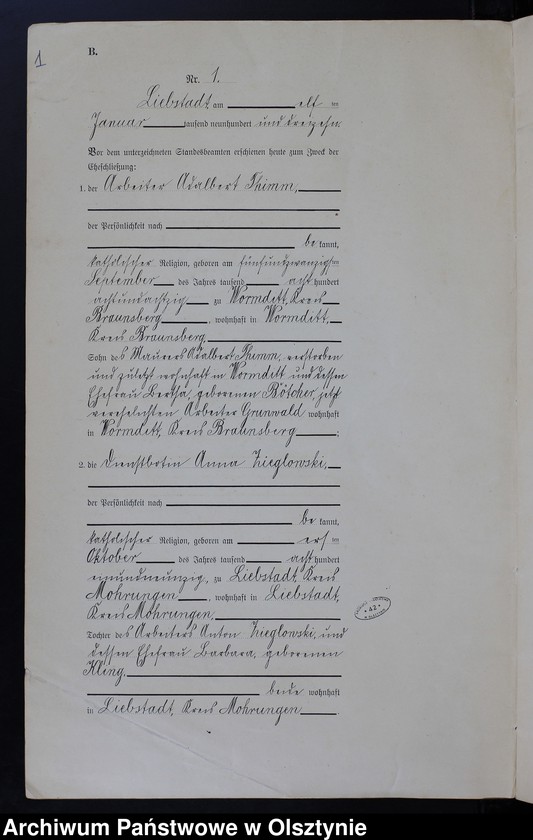 1
B.
Nr. 1.
Liebstadt, am elf ten
Januar tausend neunhundert und dreizehn.
Vor dem unterzeichneten Standesbeamten erschienen heute zum Zweck der
Eheschließung:
1. der Arbeiter Adalbert Thimm,
der Persönlichkeit nach
be kannt,
katholischer Religion, geboren am fünfundzwanzigsten
September des Jahres tausend acht hundert
achtundachtzig zu Wormditt, Kreis
Braunsberg, wohnhaft in Wormditt,
Kreis Braunsberg,
Sohn des Maurers Adalbert Thimm, verstorben
und zuletzt wohnhaft in Wormditt und dessen
Ehefrau Bertha, geborenen Bötcher, jetzt
verehelichten Arbeiter Grunwald wohnhaft
in Wormditt, Kreis Braunsberg;
2. die Dienstbotin Anna Zieglowski,
der Persönlichkeit nach
be kannt,
katholischer Religion, geboren am ersten
Oktober des Jahres tausend acht hundert
einundneunzig, zu Liebstadt, Kreis
Mohrungen, wohnhaft in Liebstadt,
Kreis Mohrungen,
Tochter des Arbeiters Anton Zieglowski, und
dessen Ehefrau Barbara, geborenen
Kling,
beide wohnhaft
in Liebstadt, Kreis Mohrungen.
42
Archiwum Państwowe w Olsztynie